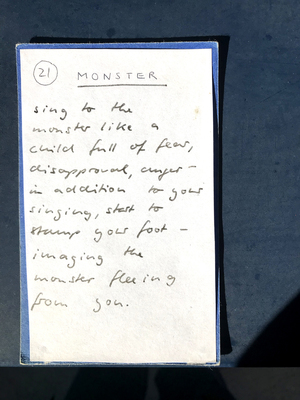 21 MONSTER
sing to the
monster like a
child full of fear,
disapproval, anger –
in addition to your
singing, start to
stamp your foot –
imaging the
monster fleeing
from you.